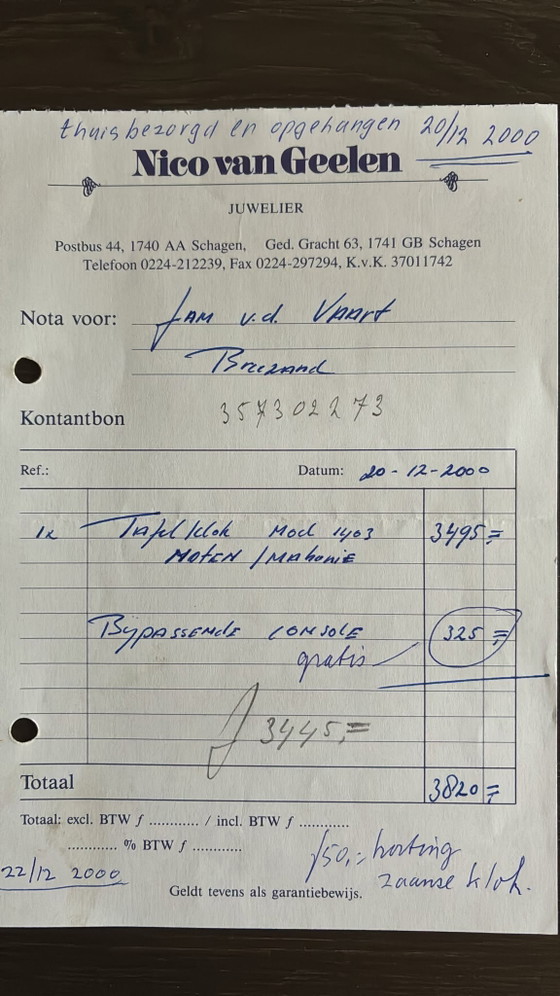 thuisbezorgd en opgehangen 20/12 2000
Nico van Geelen
JUWELIER
Postbus 44, 1740 AA Schagen, Ged. Gracht 63, 1741 GB Schagen
Telefoon 0224-212239, Fax 0224-297294, K.v.K. 37011742
Nota voor: Jam v.d. Vaart
Breezand
Kontantbon 357302273
Ref.: Datum: 20-12-2000
1x Tafelklok Mod 1403 3495=
Noten / Mahonie
Bijpassende console 325=
gratis
ƒ 3445,=
Totaal 3820=
Totaal: excl. BTW ƒ ............ / incl. BTW ƒ ............
............ % BTW ƒ ............
ƒ50,- korting
22/12 2000 zaanse klok.
Geldt tevens als garantiebewijs.